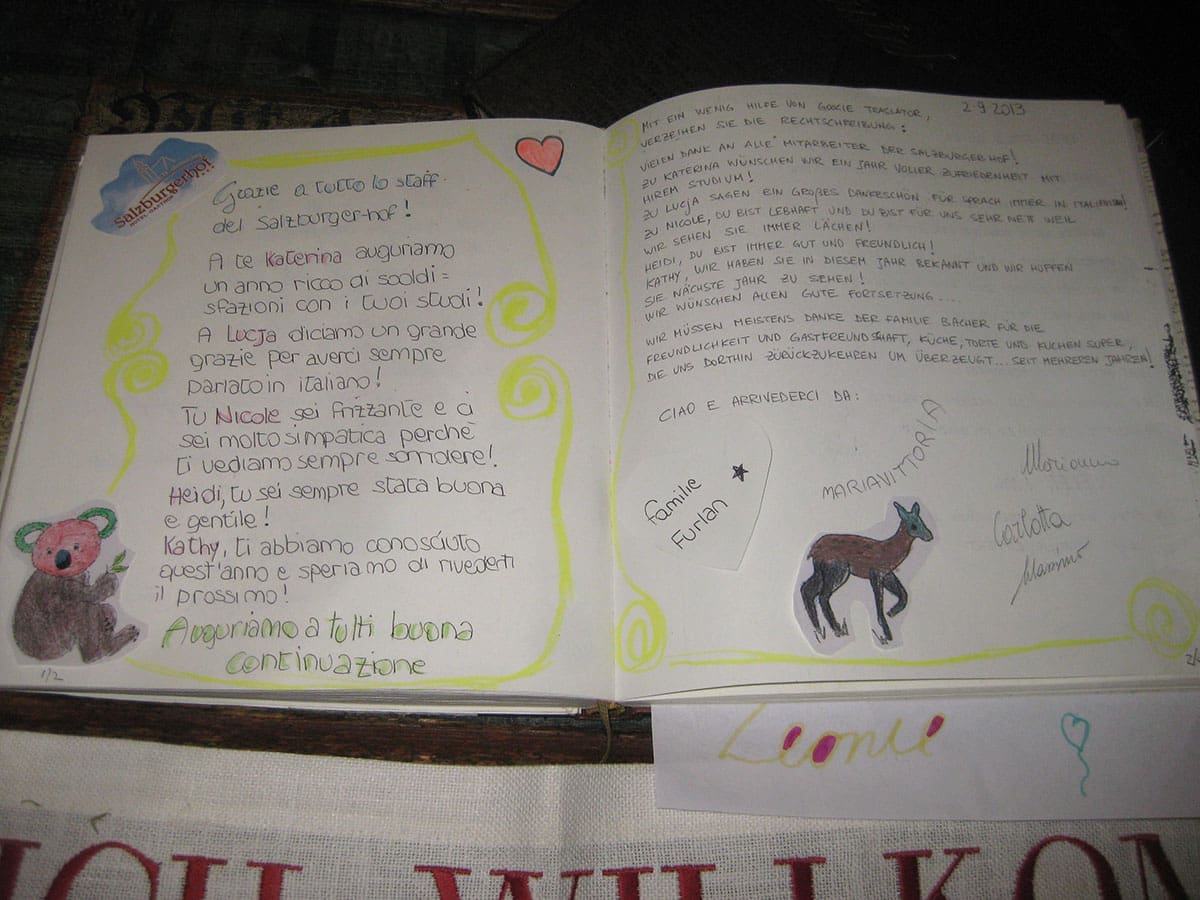 Salzburgerhof
Grazie a tutto lo staff
del Salzburger-hof!
A te Katerina auguriamo
un anno ricco di soddi=
sfazioni con i tuoi studi!
A Lucja diciamo un grande
grazie per averci sempre
parlato in italiano!
Tu Nicole sei frizzante e ci
sei molto simpatica perchè
ti vediamo sempre sorridere!
Heidi, tu sei sempre stata buona
e gentile!
Kathy, ti abbiamo conosciuto
quest'anno e speriamo di rivederti
il prossimo!
Auguriamo a tutti buona
continuazione
1/2
2-9-2013
MIT EIN WENIG HILFE VON GOOGLE TRASLATOR,
VERZEIHEN SIE DIE RECHTSCHREIBUNG:
VIELEN DANK AN ALLE MITARBEITER DER SALZBURGER HOF!
ZU KATERINA WÜNSCHEN WIR EIN JAHR VOLLER ZUFRIEDENHEIT MIT
HIREM STUDIUM!
ZU LUCJA SAGEN EIN GROßES DANKESCHÖN FÜR SPRACH IMMER IN ITALIENISCH!
ZU NICOLE, DU BIST LEBHAFT UND DU BIST FÜR UNS SEHR NETT WEIL
WIR SEHEN SIE IMMER LÄCHEN!
HEIDI, DU BIST IMMER GUT UND FREUNDLICH!
KATHY, WIR HABEN SIE IN DIESEM JAHR BEKANNT UND WIR HOFFEN
SIE NÄCHSTE JAHR ZU SEHEN!
WIR WÜNSCHEN ALLEN GUTE FORTSETZUNG....
WIR MÜSSEN MEISTENS DANKE DER FAMILIE BACHER FÜR DIE
FREUNDLICHKEIT UND GASTFREUNDSCHAFT, KÜCHE, TORTE UND KUCHEN SUPER,
DIE UNS DORTHIN ZÜRÜCKZUKEHREN UM ÜBERZEUGT... SEIT MEHREREN JAHREN!
CIAO E ARRIVEDERCI DA:
Familie
Furlan
MARIAVITTORIA
Marianna
Carlotta
Massimo
Leonie
WILLKOM